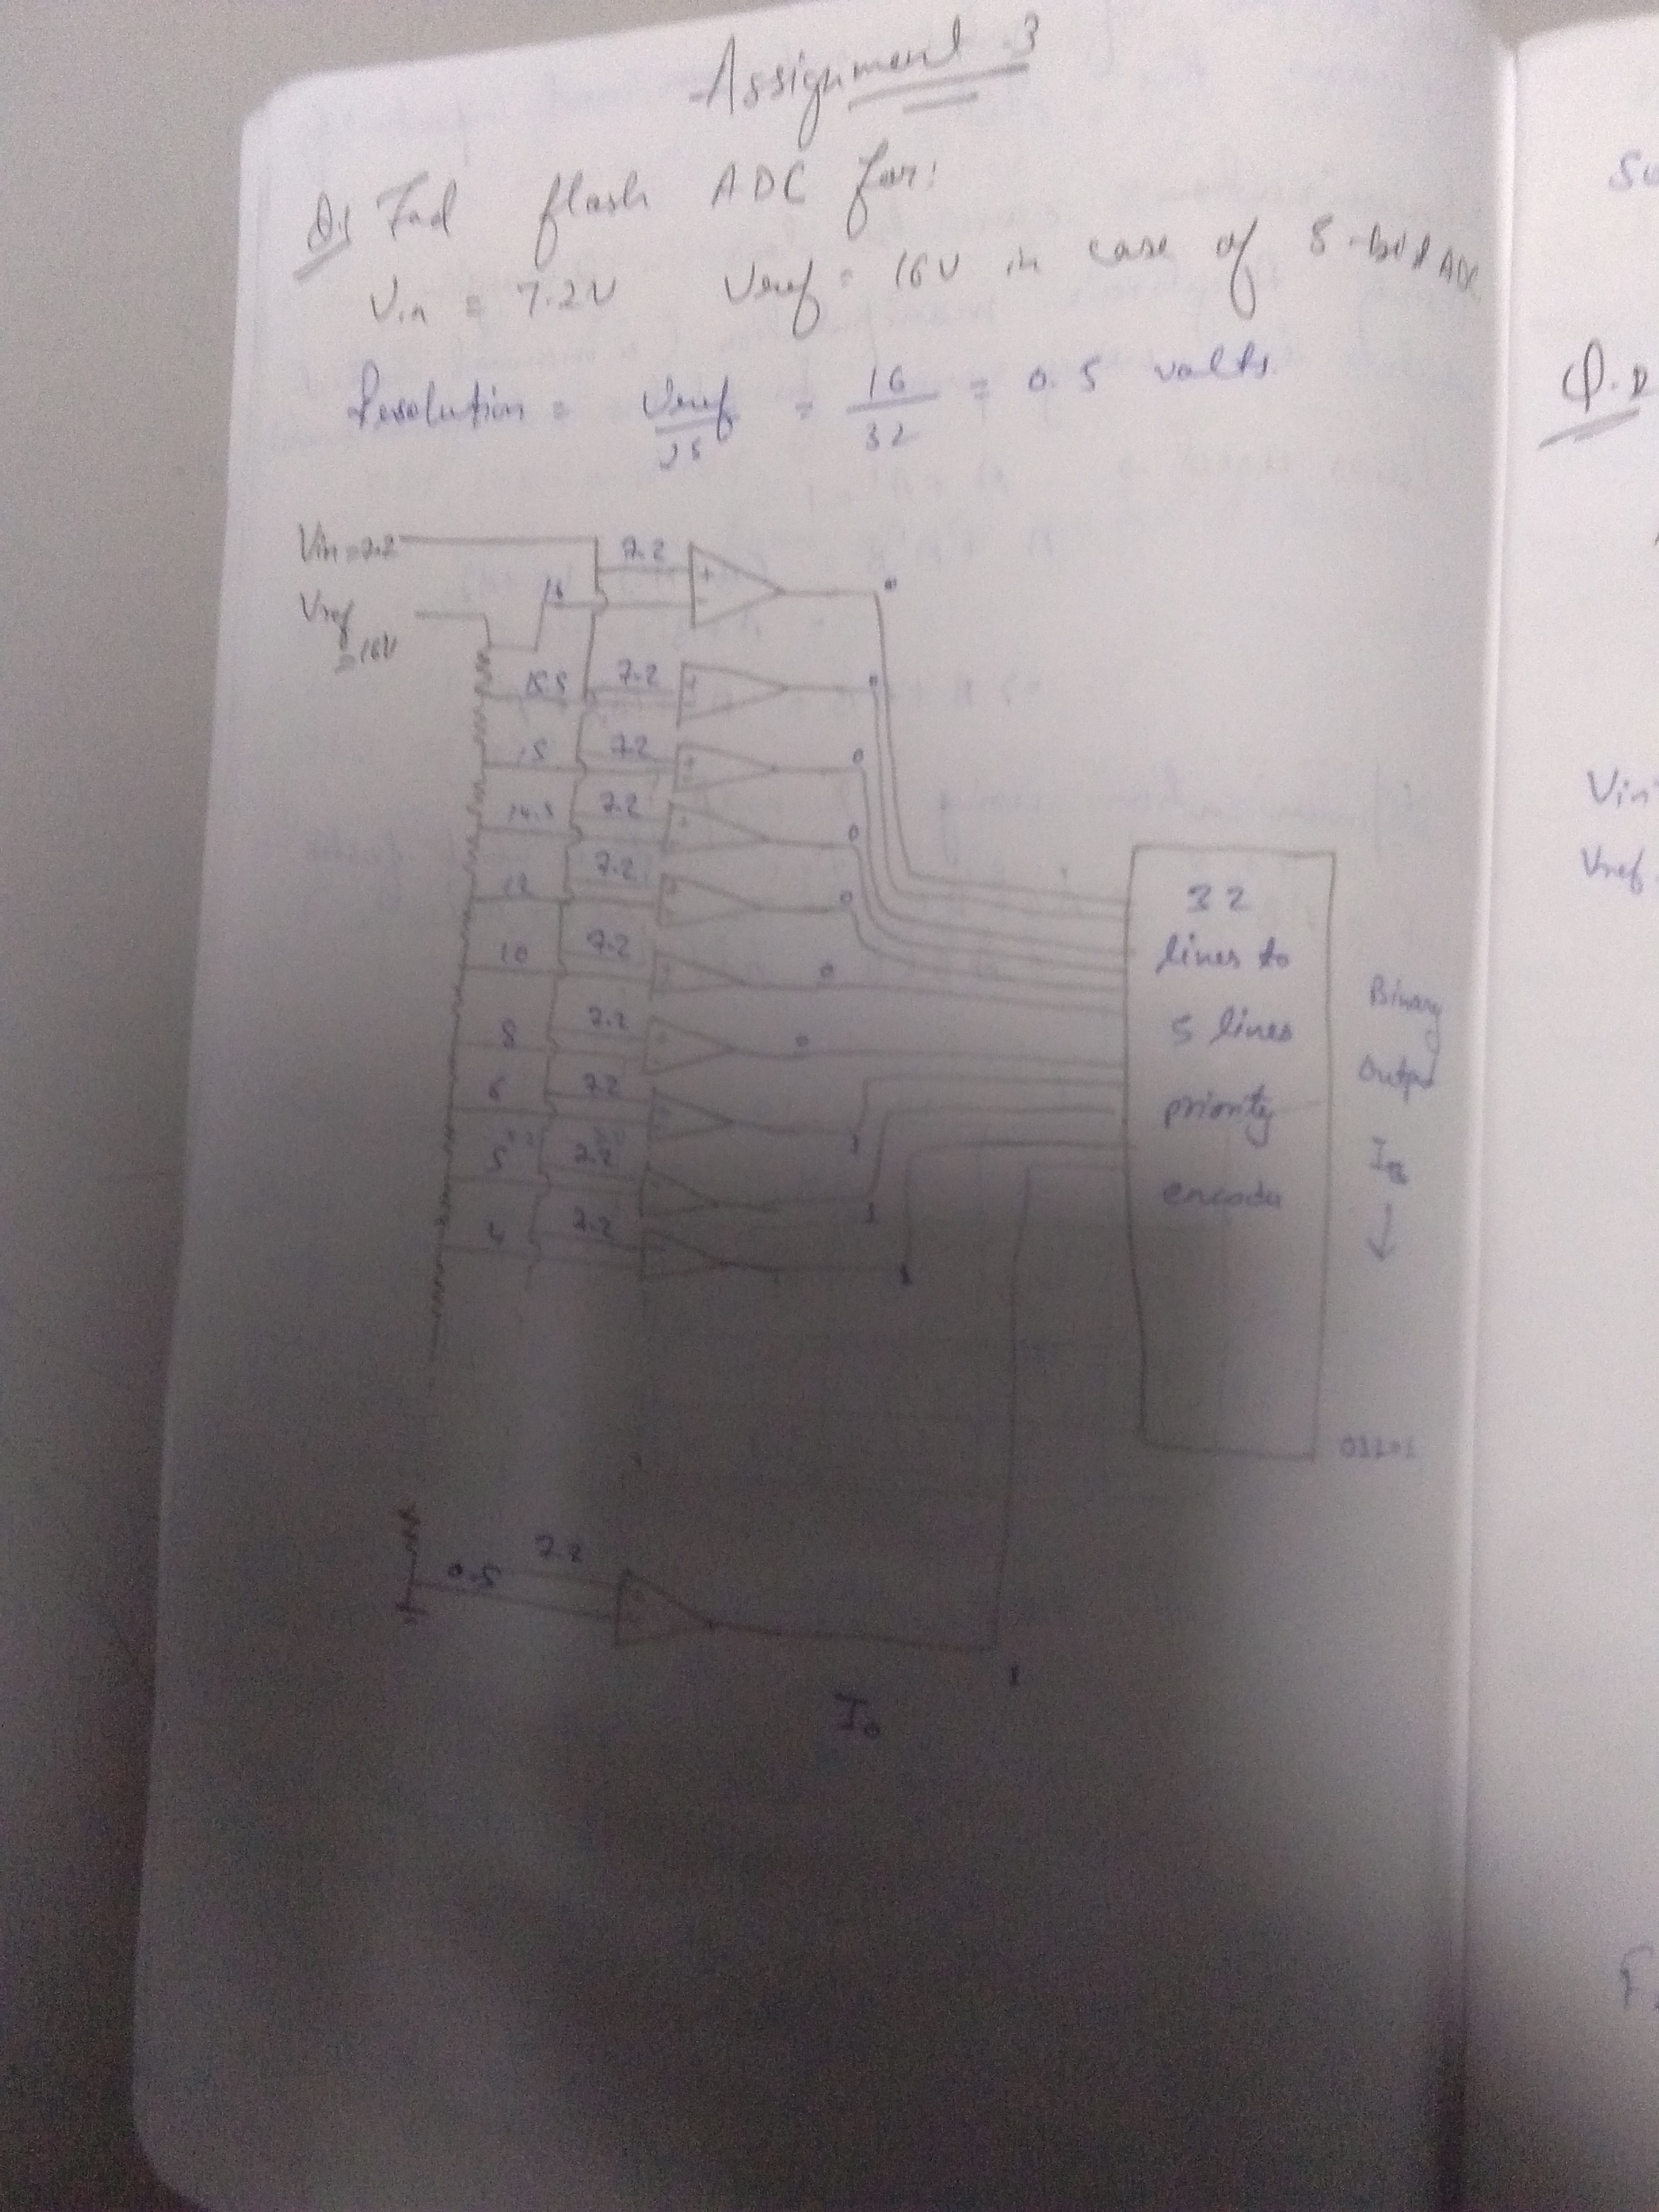 Assignment 3
Q.1 Find flash ADC for:
Vin = 7.2V Vref = 16V in case of 5-bit ADC
Resolution = Vref/25 = 16/32 = 0.5 volts.
Vin=7.2
7.2
+
-
0
Vref = 16V
16
15.5 7.2 + 0
15 7.2 + 0
14.5 7.2 + 0
12 7.2 + 0
10 7.2 0
8 7.2 0
6 7.2 1
5 7.2 1
4 7.2 1
32
lines to
5 lines
priority
Binary
Output
01101
0.5 7.2
1
I0
Su
Vin
Vref